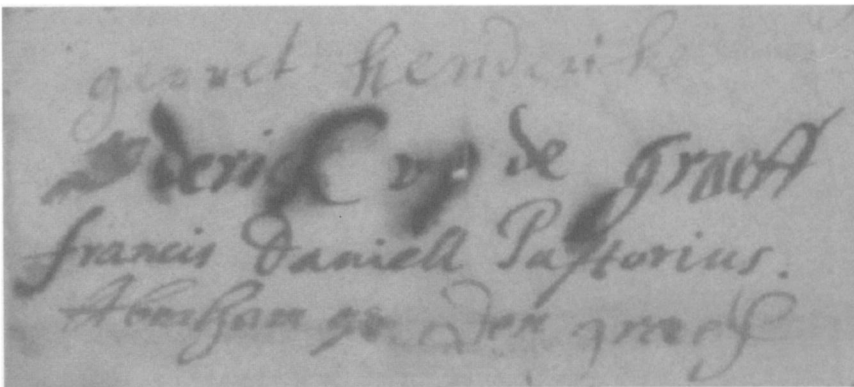 gerret henderiks
derick op de graeff
francis daniell Pastorius.
Abraham op den graeff